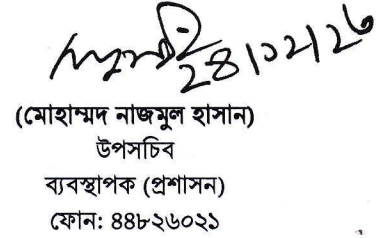 ২৪/০২/২৬
(মোহাম্মদ নাজমুল হাসান)
উপসচিব
ব্যবস্থাপক (প্রশাসন)
ফোন: ৪৪৮২৬০২১